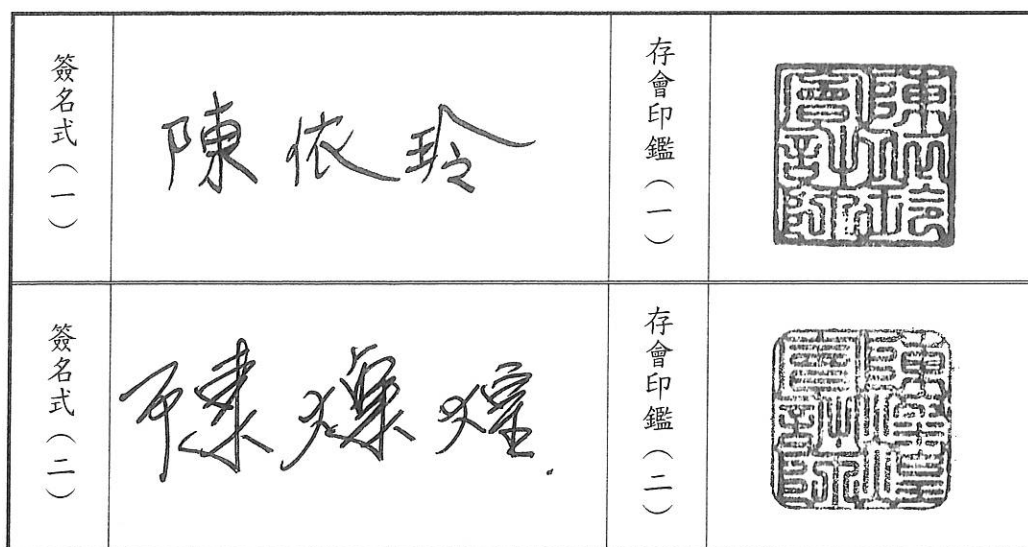 簽名式(一)
陳依玲
存會印鑑(一)
陳依玲會計師
簽名式(二)
陳燦煌
存會印鑑(二)
陳燦煌會計師